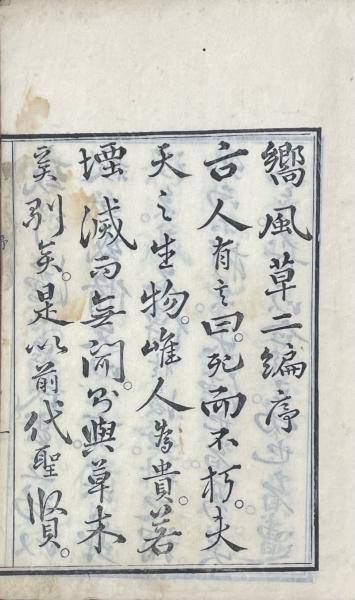 嚮風草二編序
古人有言曰。死而不朽。夫
天之生物。唯人為貴。若
堙滅而無聞。則與草木
奚別矣。是以前代聖賢。
序